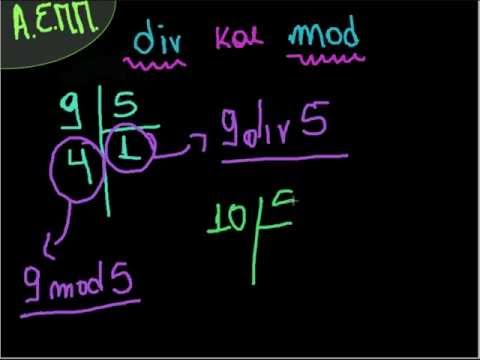 Α.Ε.Π.Π.
div και mod
9 5
4 1
9 div 5
10 5
9 mod 5